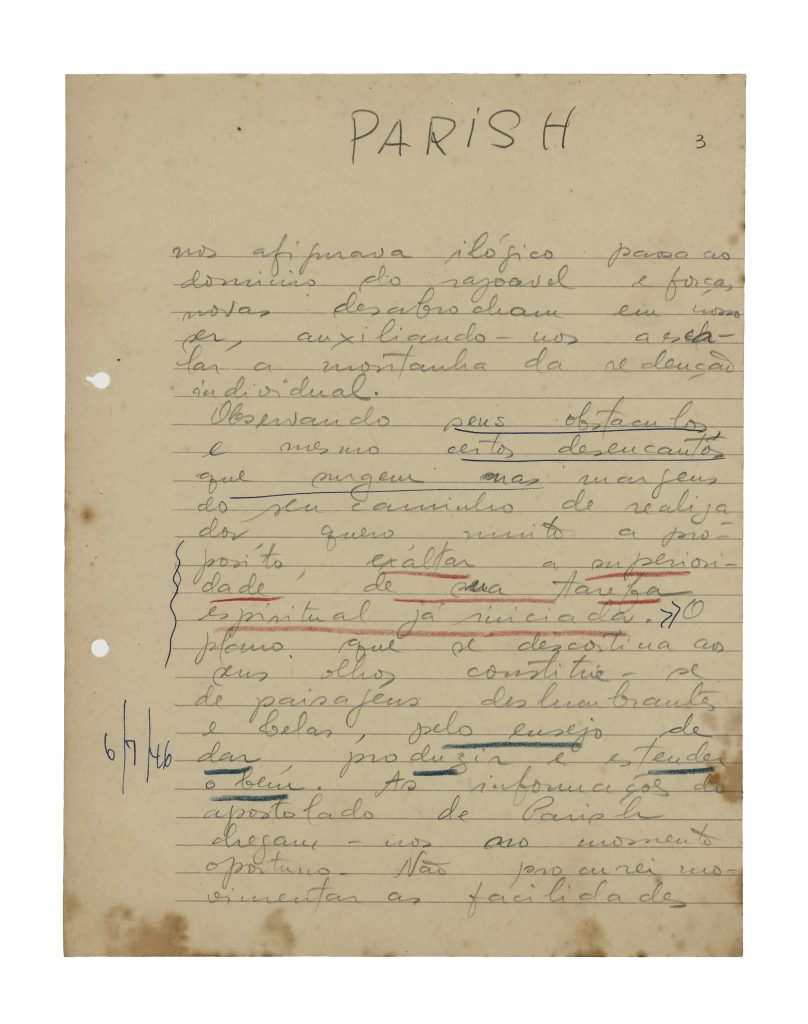 PARISH
3
nos afigurava ilógico passa ao
dominio do razoavel e forças
novas desabrocham em nosso
ser, auxiliando-nos a esca-
lar a montanha da redenção
individual.
Observando seus obstaculos
e mesmo certos desencantos
que surgem nas margens
do seu caminho de realiza
dor, quero muito a pro-
posito, exaltar a superiori-
dade, de sua tarefa
espiritual já iniciada. » O
plano que se descortina aos
seus olhos constitue-se
de paisagens deslumbrantes
e belas, pelo ensejo de
6/7/46
dar, produzir e estender
o bem. As informações do
apostolado de Parish
chegam-nos no momento
oportuno. Não procurei mo-
vimentar as facilidades